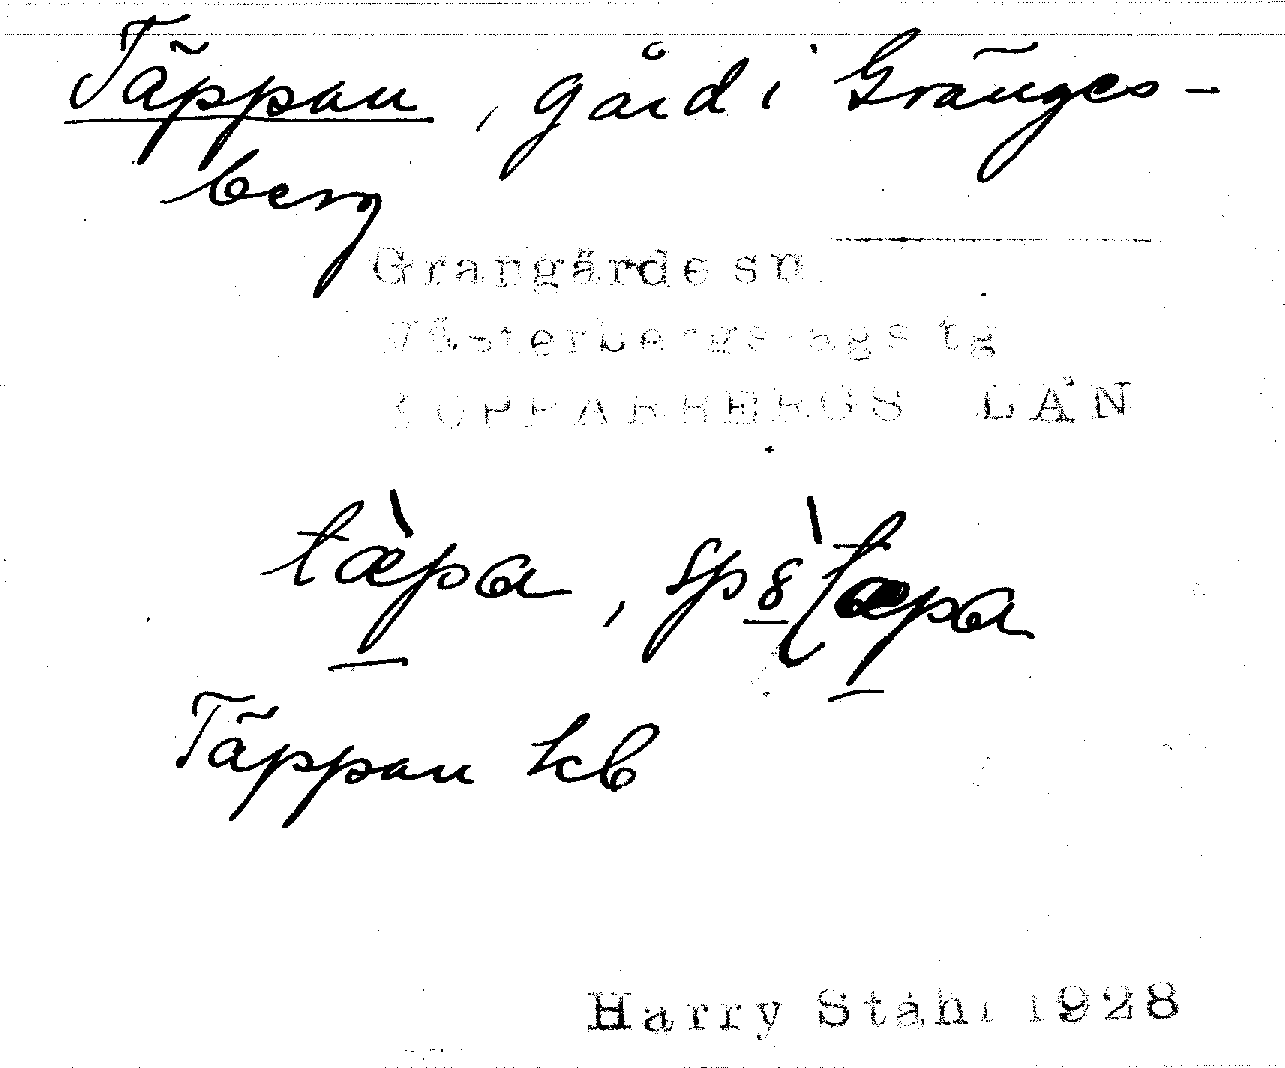 Täppan, gård i Gränges-
berg
Grangärde sn
Västerbergslags tg
KOPPARBERGS LÄN
tæ̀pa,
Täppan kb
Harry Ståhl 1928